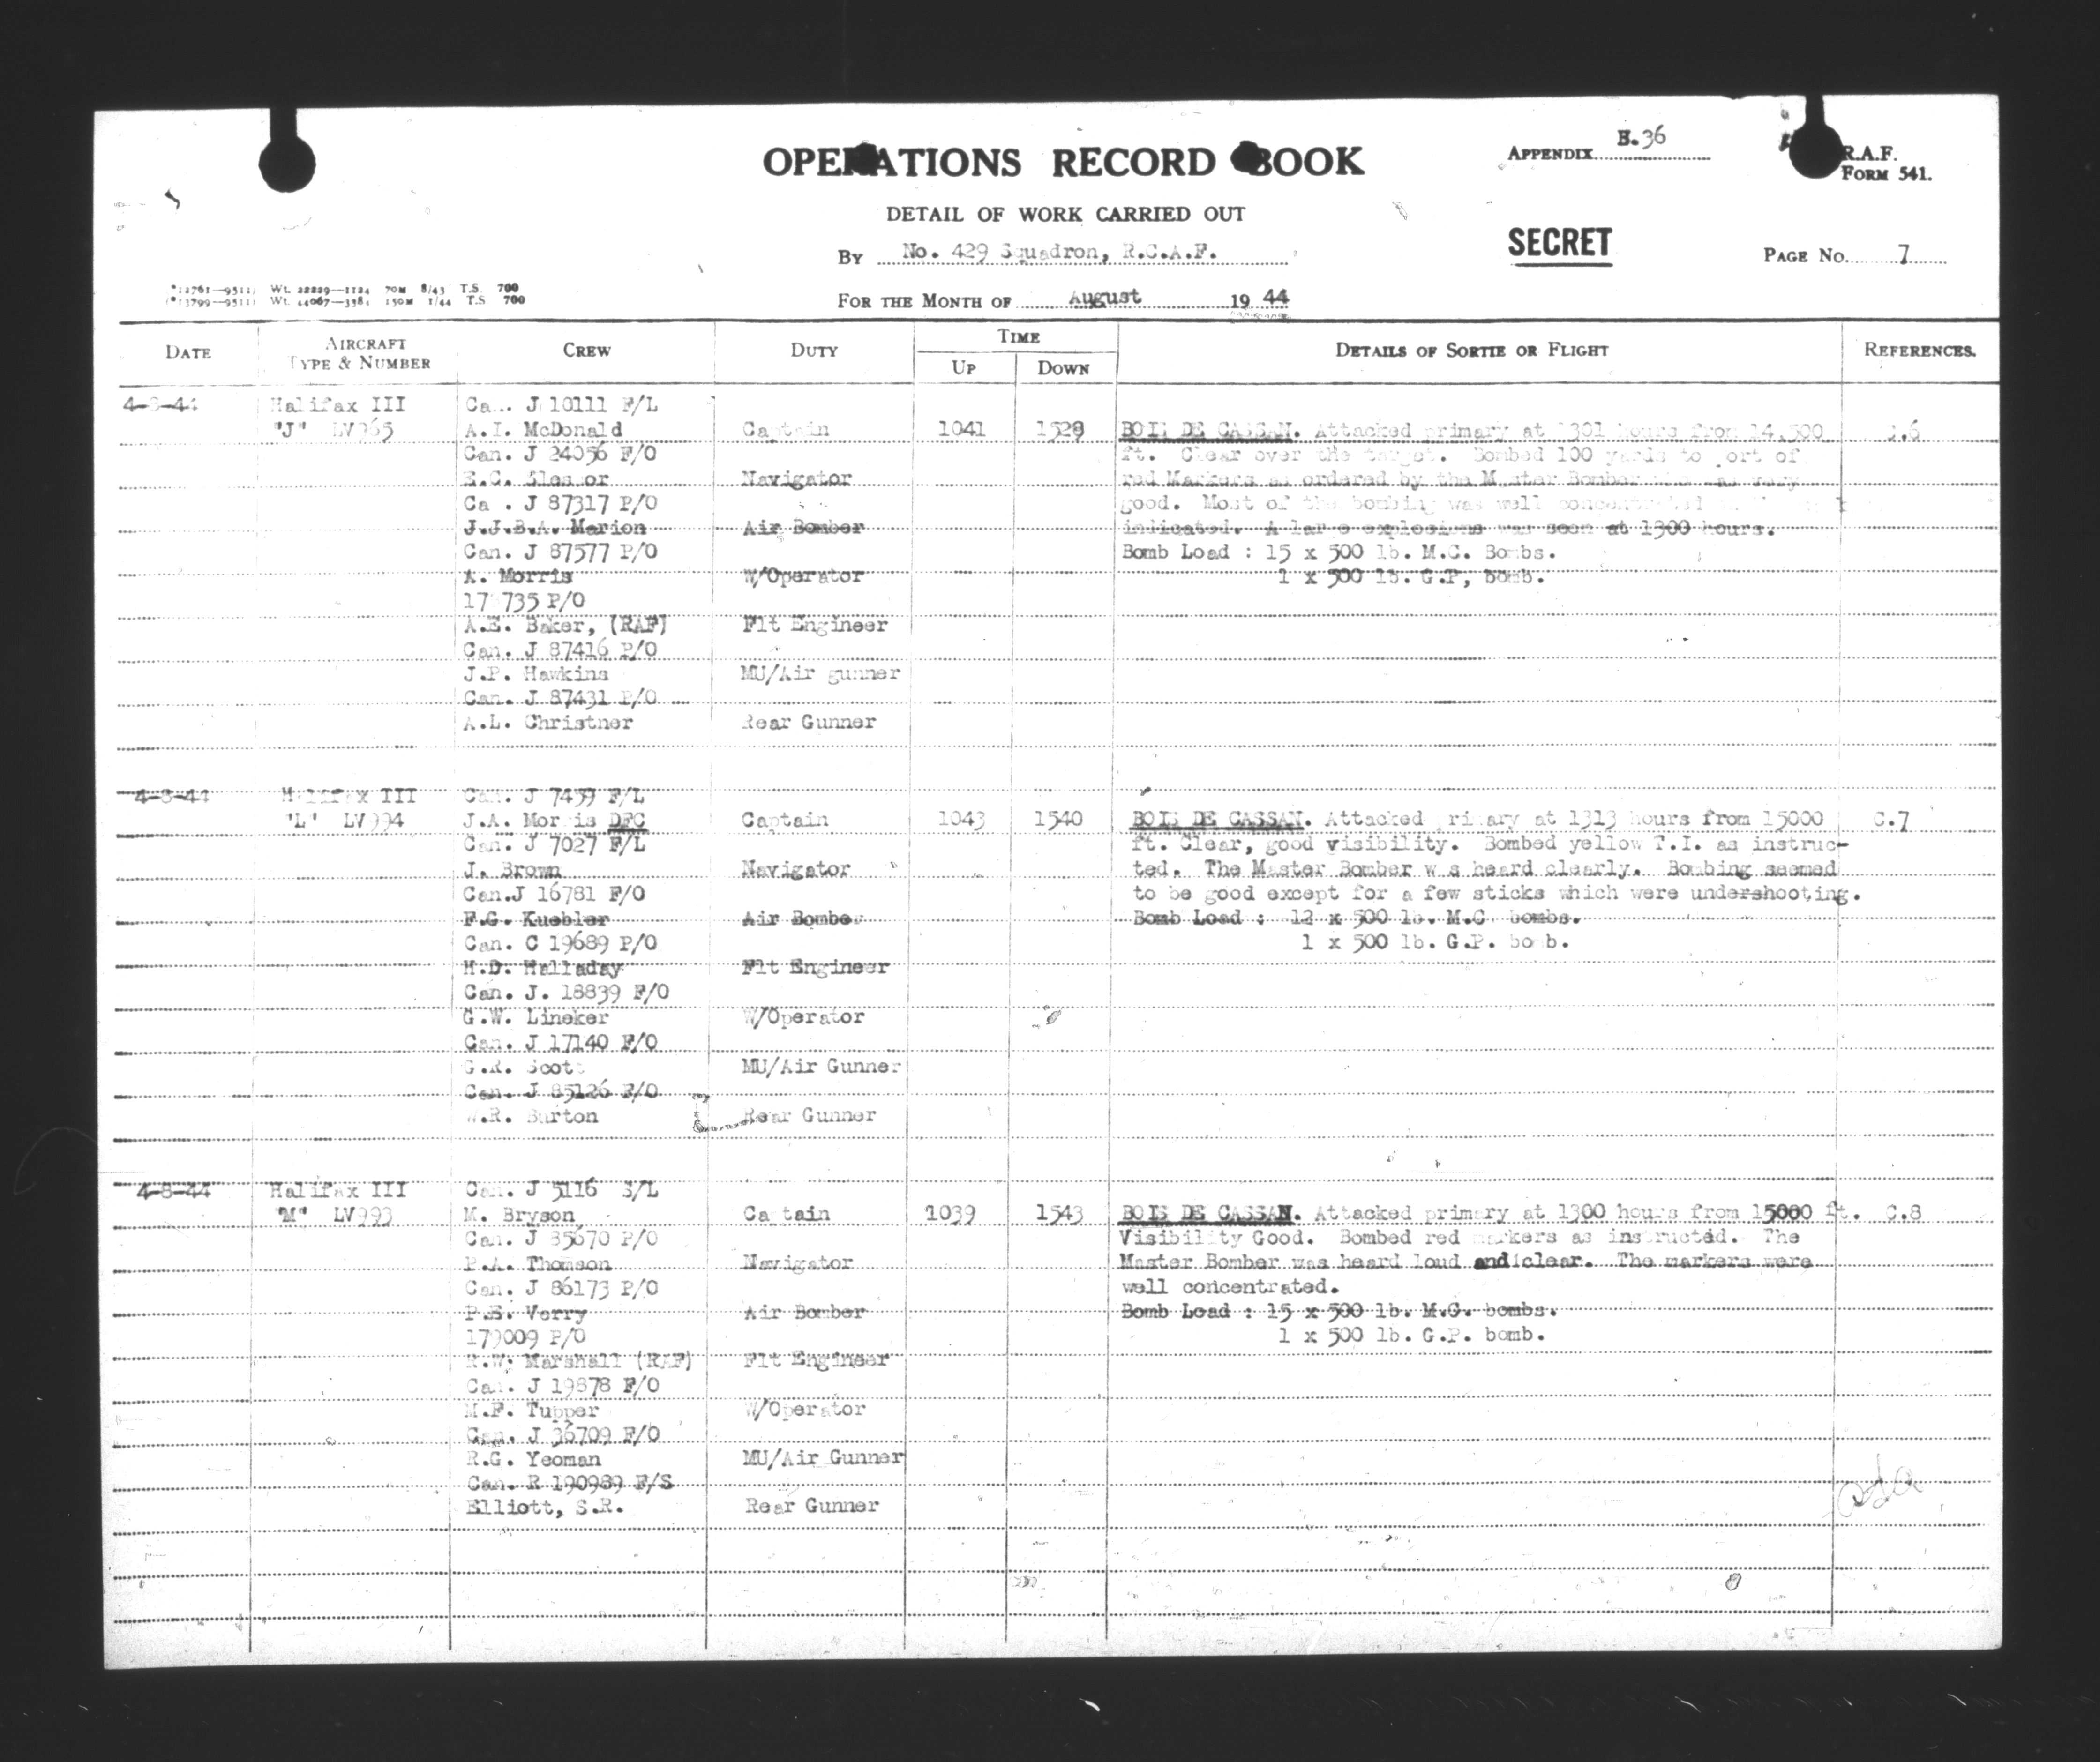 OPERATIONS RECORD BOOK
APPENDIX B.36
R.A.F. FORM 541.
DETAIL OF WORK CARRIED OUT
SECRET
BY No. 429 Squadron, R.C.A.F.
PAGE No. 7
Wt. 22229—1124 70M 8/43 T.S. 700
Wt. 44067—3381 150M 1/44 T.S. 700
FOR THE MONTH OF August 19 44
DATE
AIRCRAFT TYPE & NUMBER
CREW
DUTY
TIME
UP
DOWN
DETAILS OF SORTIE OR FLIGHT
REFERENCES.
4-8-44 Halifax III Can. J 10111 F/L
"J" LV965 A.I. McDonald Captain 1041 1529 BOIS DE CASSAN. Attacked primary at 1301 hours from 14,500 C.6
Can. J 24056 F/O ft. Clear over the target. Bombed 100 yards to port of
E.C. Navigator red Markers as ordered by the Master Bomber very
Can. J 87317 P/O good. Most of the bombing was well concentrated
J.J.B.A. Marion Air Bomber indicated. A large explosions was seen at 1300 hours.
Can. J 87577 P/O Bomb Load : 15 x 500 lb. M.C. Bombs.
A. Morris W/Operator 1 x 500 lb. G.P, bomb.
735 P/O
A.E. Baker, (RAF) Flt Engineer
Can. J 87416 P/O
J.P. Hawkins MU/Air gunner
Can. J 87431 P/O
A.L. Christner Rear Gunner
4-8-44 Halifax III Can. J 7459 F/L
"L" LV994 J.A. Morris DFC Captain 1043 1540 BOIS DE CASSAN. Attacked primary at 1313 hours from 15000 C.7
Can. J 7027 F/L ft. Clear, good visibility. Bombed yellow T.I. as instruc-
J. Brown Navigator ted. The Master Bomber was heard clearly. Bombing seemed
Can.J 16781 F/O to be good except for a few sticks which were undershooting.
F.G. Kuebler Air Bomber Bomb Load : 12 x 500 lb. M.C bombs.
Can. C 19689 P/O 1 x 500 lb. G.P. bomb.
H.D. Halladay Flt Engineer
Can. J. 18839 F/O
G.W. Lineker W/Operator
Can. J 17140 F/O
G.R. Scott MU/Air Gunner
Can. J 85126 F/O
W.R. Burton Rear Gunner
4-8-44 Halifax III Can. J 5116 S/L
"M" LV993 M. Bryson Captain 1039 1543 BOIS DE CASSAN. Attacked primary at 1300 hours from 15000 ft. C.8
Can. J 85670 P/O Visibility Good. Bombed red markers as instructed. The
P.A. Thomson Navigator Master Bomber was heard loud and clear. The markers were
Can. J 86173 P/O well concentrated.
P.E. Verry Air Bomber Bomb Load : 15 x 500 lb. M.C. bombs.
179009 P/O 1 x 500 lb. G.P. bomb.
R.W. Marshall (RAF) Flt Engineer
Can. J 19878 F/O
M.F. Tupper W/Operator
Can. J 36709 F/O
R.G. Yeoman MU/Air Gunner
Can. R 190989 F/S
Elliott, S.R. Rear Gunner